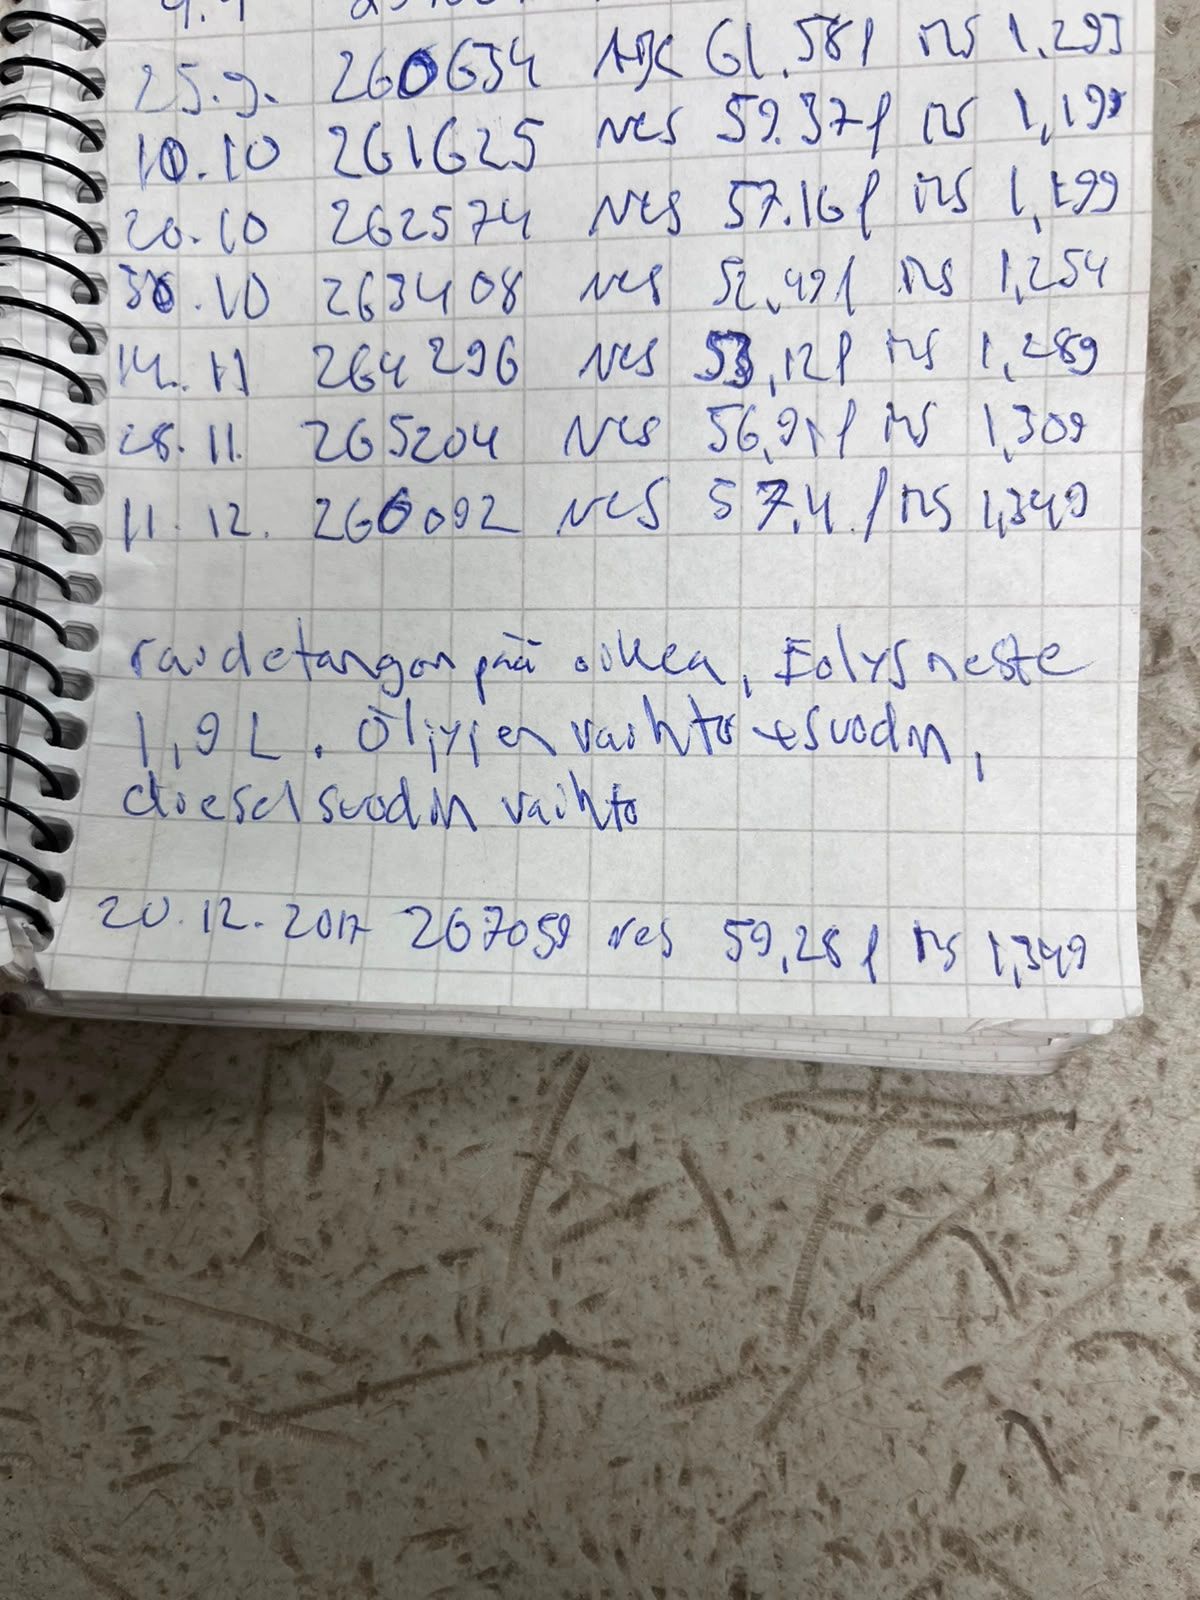 25.9. 260634 ABC 61.58l ms 1,293
10.10 261625 nes 59.37l ms 1,199
20.10 262574 nes 57.16l ms 1,199
30.10 263408 nes 52,49l ms 1,254
14.11 264296 nes 53,12l ms 1,289
28.11. 265204 nes 56,91l ms 1,309
11.12. 266092 nes 57,4.l ms 1,349
raidetangon pää oikea, Eolys neste
1,9 L. Öljyjen vaihto + suodin,
diesel suodin vaihto
20.12.2017 267059 nes 59,28l ms 1,349